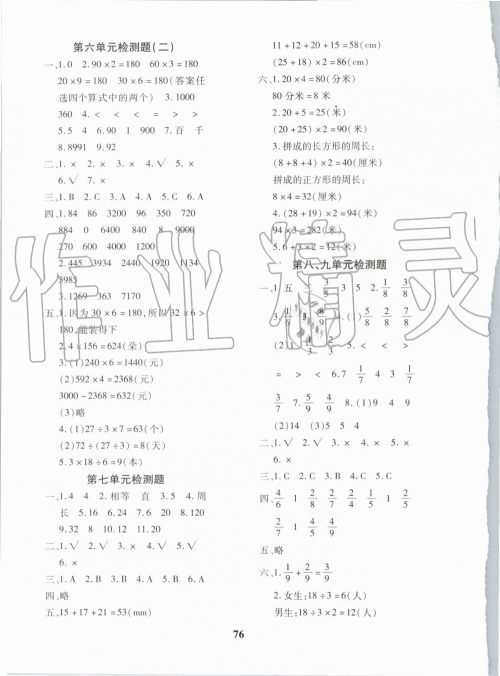 第六单元检测题(二)
一、1.0 2.90×2=180 60×3=180
20×9=180 30×6=180(答案任
选四个算式中的两个) 3.1000
360 4.< < < = > >
5.5 4 6.90 1 900 7.百 千
8.8991 9.92
二、1.× 2.× 3.√ 4.√ 5.×
6.√ 7.×
三、1.B 2.C 3.A 4.B 5.C
四、1.84 86 3200 156 720
884 0 6400 840 8 9000
270 6000 4000
2.445 3934 2440 1920 1134
5985
3.1269 363 7170
五、1.因为30×6=180,所以32×6>
180,能装得下
2.4×156=624(朵)
3.(1)240×6=1440(元)
(2)592×4=2368(元)
3000-2368=632(元)
(3)略
4.(1)27÷3×7=63(个)
(2)72÷(27÷3)=8(天)
5.3×18÷6=9(本)
第七单元检测题
一、1.4 4 2.相等 直 3.5 4.周
长 5.16 6.24 7.20 8.120
9.32 8 10.12 11.20
二、1.√ 2.√ 3.× 4.√ 5.√
6.×
三、1.C 2.A 3.B 4.B 5.A
四、略
五、15+17+21=53(mm)
11+12+20+15=58(cm)
(25+18)×2=86(cm)
六、1.20×4=80(分米)
80分米=8米
2.20+5=25(米)
(20+25)×2=90(米)
3.拼成的长方形的周长:
(8+8+4)×2=40(厘米)
拼成的正方形的周长:
8×4=32(厘米)
4.(28+19)×2=94(米)
94×3=282(米)
5.6+3×2=12(米)
第八、九单元检测题
3/8 3 5 2.1/8 3/8
4.(1)5/8 8/8 7/7
> < 6.7 1/7 4/7 3/7
3/7 7.5/9 4/9 8.(1)9 4 9
(2)14 (3)5 5 4
二、1.√ 2.√ 3.× 4.× 5.√
6.×
三、1.C 2.C 3.B 4.B 5.C
四、4/6 1 2/8 2/7 2/4 1/5 1 2/5
2/7 1 4/5 4/9
五、略
六、1.1/9+2/9=3/9
2.女生:18÷3=6(人)
男生:18÷3×2=12(人)
76
作业精灵